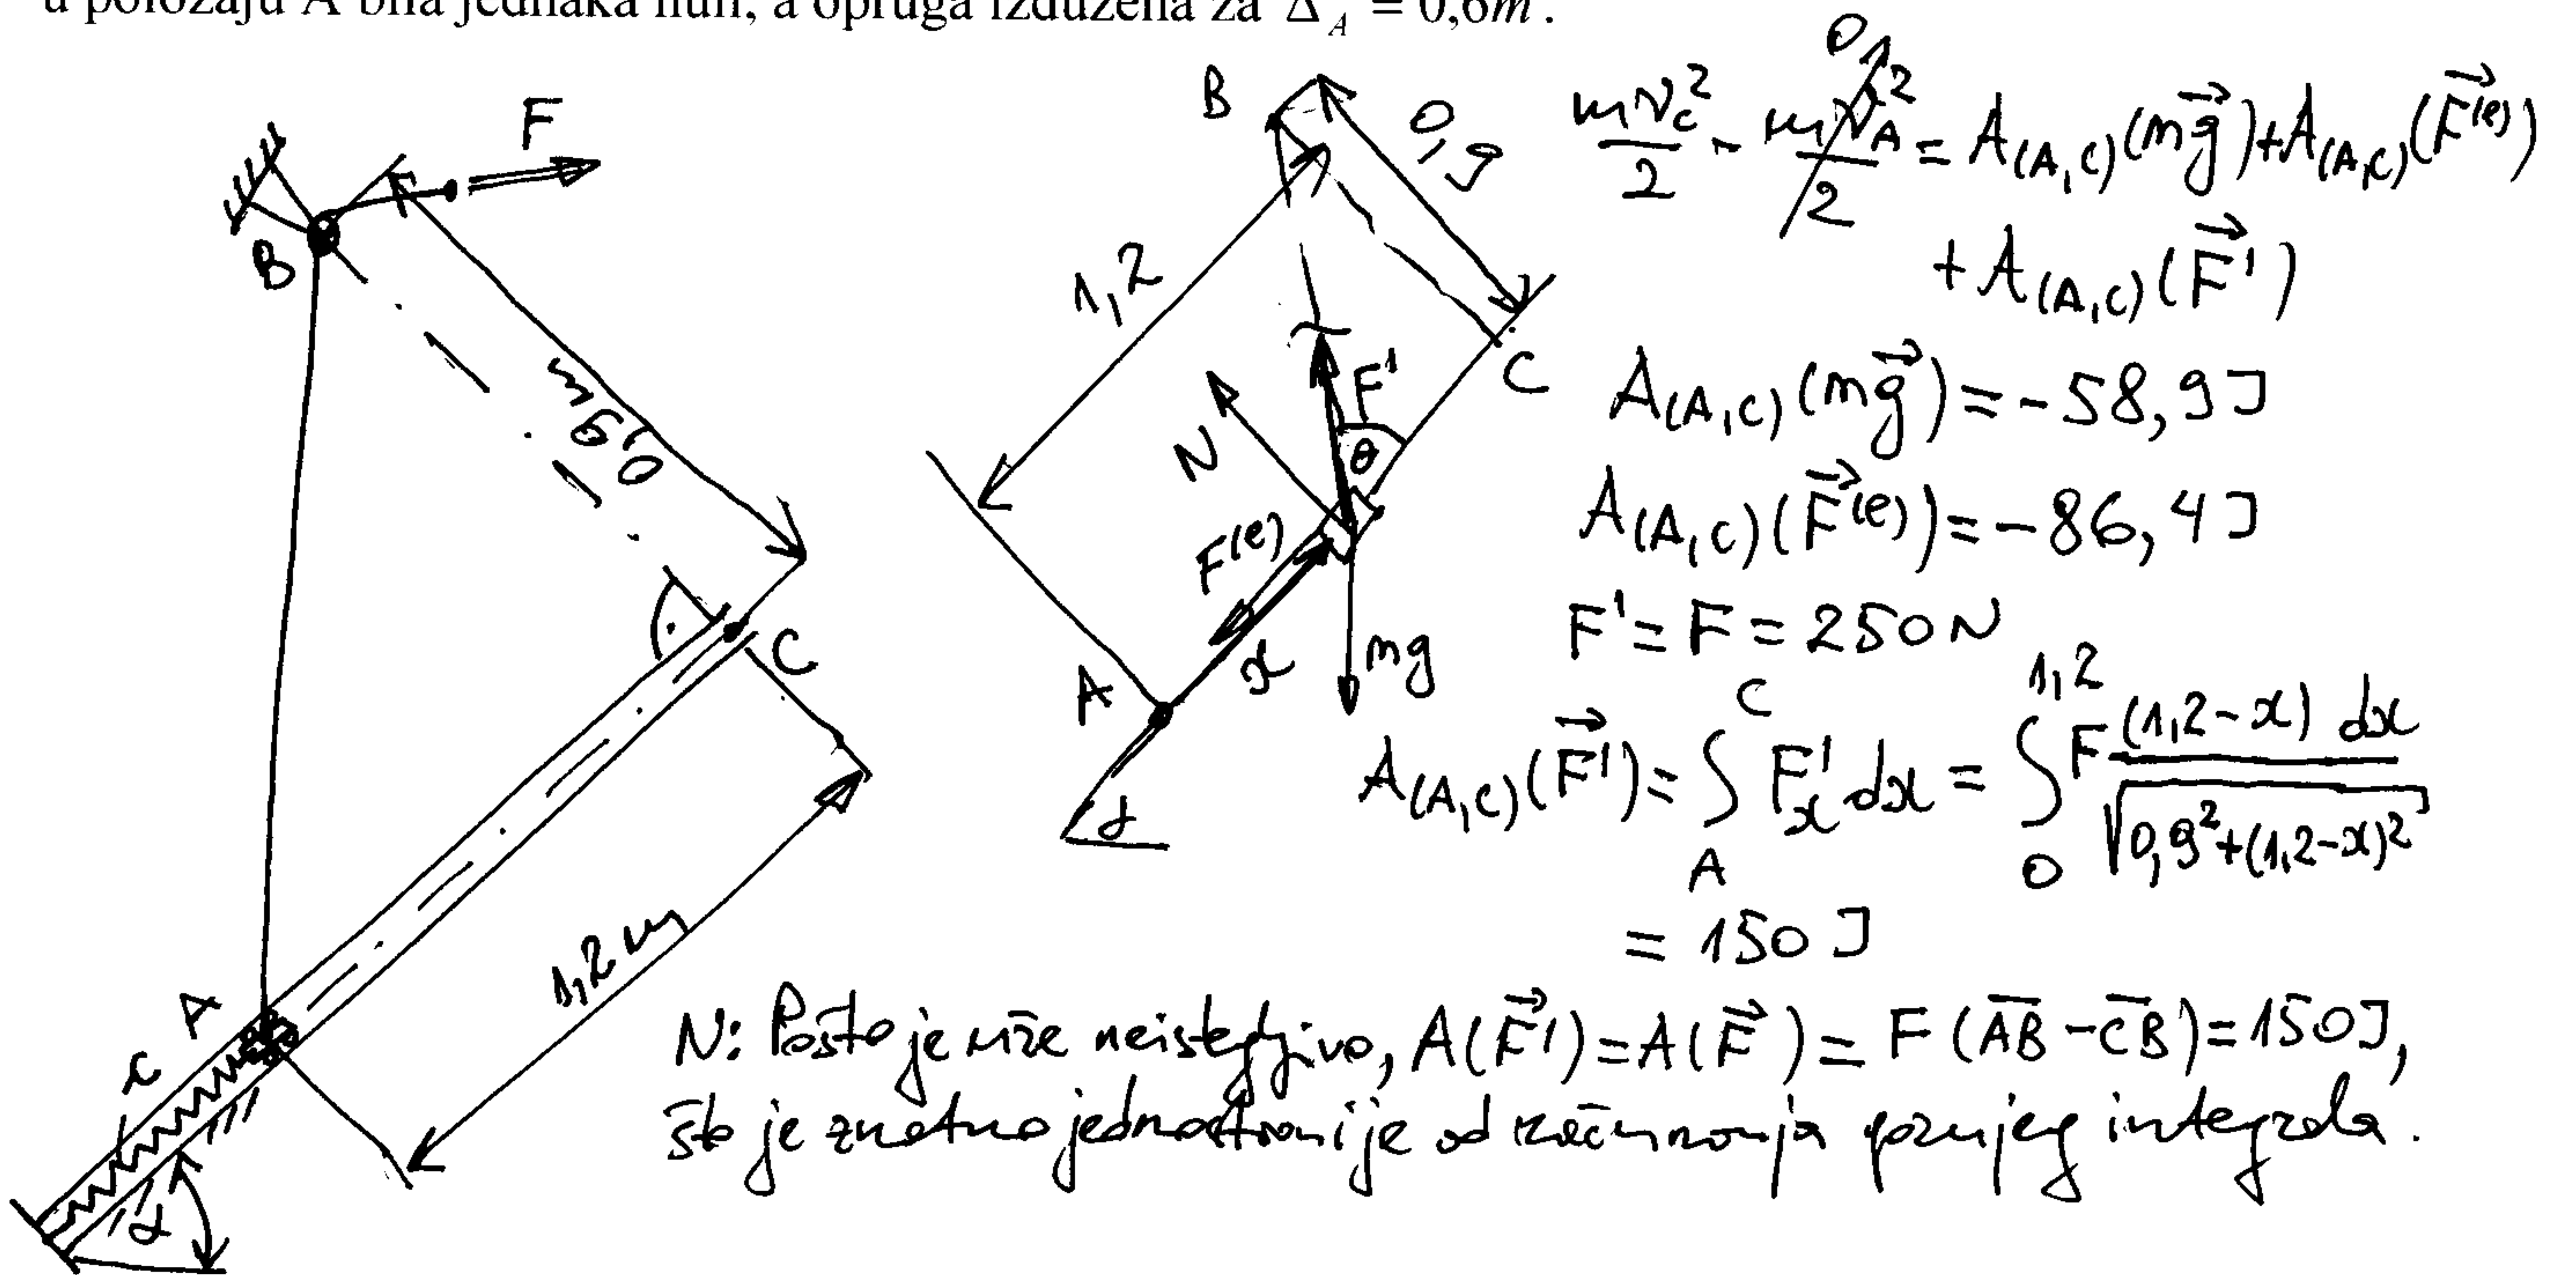 u položaju A bila jednaka nuli, a opruga izdužena za Δ_A = 0,6m.
F
B
0,9m
C
1,2m
A
c
α
B
0,9
1,2
C
F'
N
θ
F^(e)
x
mg
A
α
mv_C²/2 - mv_A²/2 = A(A,C)(mg⃗)+A(A,C)(F⃗^(e))
0
+A(A,C)(F⃗')
A(A,C)(mg⃗)=-58,9J
A(A,C)(F⃗^(e))=-86,4J
F'=F=250N
A(A,C)(F⃗')=∫_A^C F'_x dx = ∫_0^1,2 F (1,2-x) dx / √(0,9²+(1,2-x)²)
= 150J
N: Pošto je uže neistegljivo, A(F⃗')=A(F⃗)=F(AB̅-CB̅)=150J,
što je znatno jednostavnije od računanja gornjeg integrala.